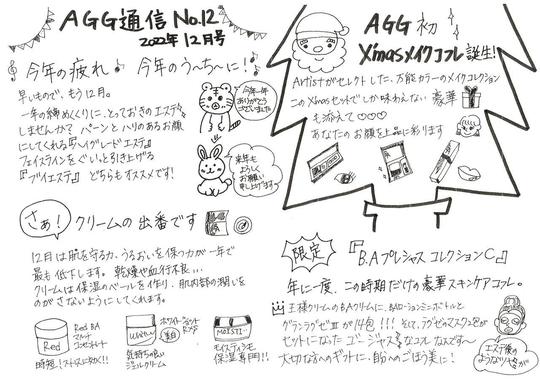 AGG通信 No.12
2022年12月号
今年の疲れ 今年のう〜ち〜に!
早いもので、もう12月。
一年の締めくくりに、とっておきのエステを
しませんか? パーンとハリのあるお顔
にしてくれる『ハイグレードエステ』
フェイスラインをぐいっと引き上げる
『ブイエステ』 どちらもオススメです!
今年一年
ありがとう
ございました
来年も
よろしく
お願い
申し上げます
さぁ! クリームの出番です
12月は肌を守る力、うるおいを保つ力が一年で
最も低下します。乾燥や血行不良...
クリームは保湿のベールを作り、肌内部の潤いを
のがさないようにしてくれます。
Red
Red BA
マルチ
コンセントレート
時短!ストレスに効く!!
White
ホワイトショット
RXS
美白
気持ちの良い
ジェルクリーム
MOISTI
モイスティシモ
保湿専門!!
AGG初
X'masメイクコフレ誕生!
Artistがセレクトした、万能カラーのメイクコレクション
このXmasセットでしか味わえない豪華
も添えて♡♡♡
あなたのお顔を上品に彩ります
限定
『B.Aプレシャス コレクションC』
年に一度、この時期だけの豪華スキンケアコフレ。
王様クリームのBAクリームに、BAローションミニボトルと
グランラグゼⅢが14包!!! そして、ラグゼのマスク2包が
セットになったゴージャスなコフレなんです〜
大切な方へのギフトに、自分へのごほう美に!
エステ後の
ようなツヤが